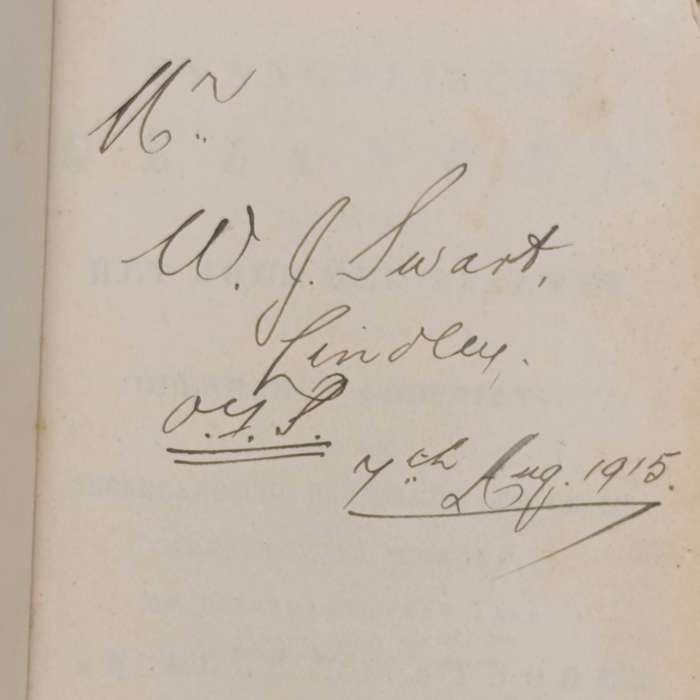 Mr
W. J. Swart,
Lindley.
O.F.S.
7th Aug. 1915.